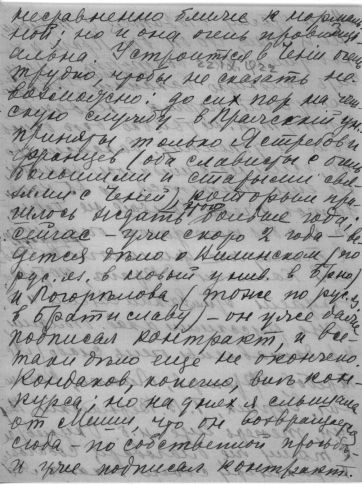 несравненно ближе к нормаль-
ной; но и она очень провинци-
альна. Устроиться в Чехии очень
трудно, чтобы не сказать не-
возможно: до сих пор на че-
скую службу – в Пражский ун.
приняты только Ястребов и
Францев (оба слависты с очень
большими и старыми свя-
зями с Чехией), которым при-
шлось ждать больше года,
сейчас – уже скоро 2 года – ве-
дется дѣло о Вилинском (по
рус. яз. в новый унив. в Брно,
и Погорѣлова, тоже по рус.,
в Братиславу) – он уже даже
подписал контракт, а все-
таки дѣло еще не окончено.
Кондаков, конечно, внѣ кон-
курса; но на днях я слышала
от Милли, что он возвращается
сюда – по собственной просьбѣ
и уже подписал контракт.